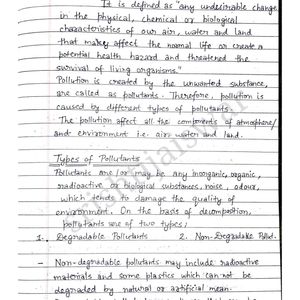 It is defined as "any undesirable change
in the physical, chemical or biological
characteristics of our air, water and land
that may affect the normal life or create a
potential health hazard and threatened the
survival of living organisms."
Pollution is created by the unwanted substance,
are called as pollutants. Therefore, pollution is
caused by different types of pollutants.
The pollution affect all the components of atmosphere/
and environment i.e. air, water and land.
Types of Pollutants
Pollutants one/or may be any inorganic, organic,
radioactive, biological substances, noise, odour,
which tends to damage the quality of
environment. On the basis of decomposition,
pollutants are of two types;
1. Degradable Pollutants 2. Non-Degradable Pollut.
- Non-degradable pollutants may include radioactive
materials and some plastics which can not be
degraded by natural or artificial mean.